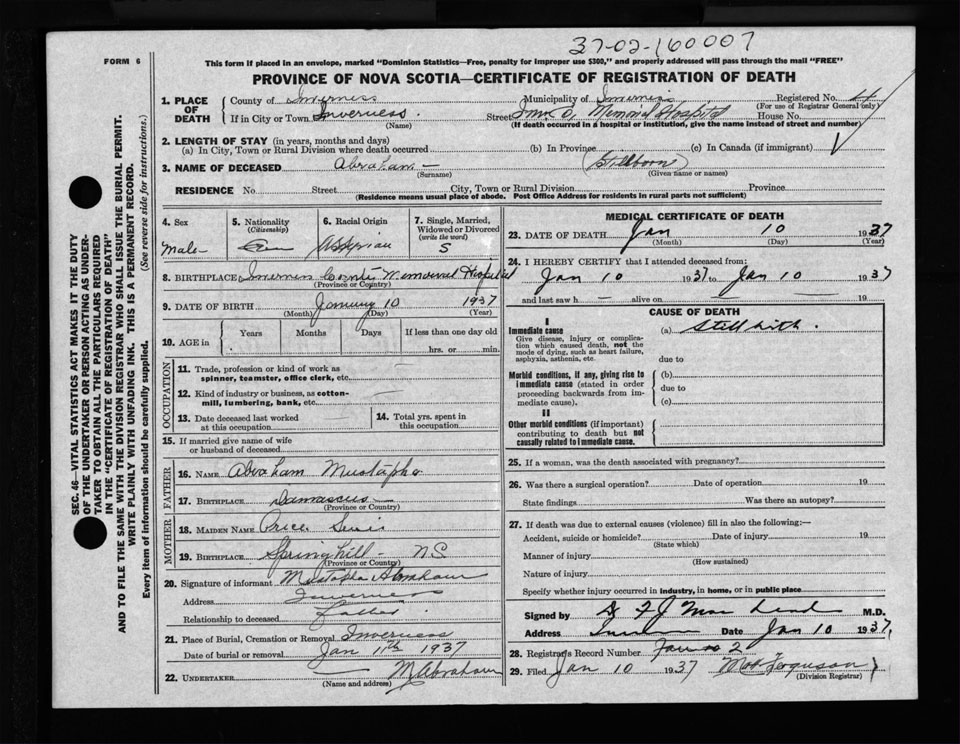 37-02-160007
FORM 6
This form if placed in an envelope, marked "Dominion Statistics—Free, penalty for improper use $300," and properly addressed will pass through the mail "FREE"
PROVINCE OF NOVA SCOTIA—CERTIFICATE OF REGISTRATION OF DEATH
1. PLACE OF DEATH
County of Inverness Municipality of Inverness Registered No. 4
(For use of Registrar General only)
If in City or Town Inverness. Street Memorial Hospital House No.
(Name) (If death occurred in a hospital or institution, give the name instead of street and number)
2. LENGTH OF STAY (in years, months and days)
(a) In City, Town or Rural Division where death occurred (b) In Province (c) In Canada (if immigrant)
3. NAME OF DECEASED Abraham — (Stillborn)
(Surname) (Given name or names)
RESIDENCE No. Street City, Town or Rural Division Province
(Residence means usual place of abode. Post Office Address for residents in rural parts not sufficient)
4. Sex
Male
5. Nationality
(Citizenship)
6. Racial Origin
7. Single, Married, Widowed or Divorced
(write the word)
S
8. BIRTHPLACE Inverness County Memorial Hospital
(Province or Country)
9. DATE OF BIRTH January 10 1937
(Month) (Day) (Year)
10. AGE in
Years Months Days If less than one day old
hrs. or min.
OCCUPATION
11. Trade, profession or kind of work as spinner, teamster, office clerk, etc.
12. Kind of industry or business, as cotton-mill, lumbering, bank, etc.
13. Date deceased last worked at this occupation
14. Total yrs. spent in this occupation
15. If married give name of wife or husband of deceased
FATHER
16. NAME Abraham Mustapha
17. BIRTHPLACE Damascus —
(Province or Country)
MOTHER
18. MAIDEN NAME Price
19. BIRTHPLACE Springhill — NS
(Province or Country)
20. Signature of informant Mustapha Abraham
Address Inverness
Relationship to deceased father.
21. Place of Burial, Cremation or Removal Inverness
Date of burial or removal Jan 11th 1937
22. UNDERTAKER M Abraham
(Name and address)
MEDICAL CERTIFICATE OF DEATH
23. DATE OF DEATH Jan 10 1937
(Month) (Day) (Year)
24. I HEREBY CERTIFY that I attended deceased from:
Jan 10 1937 to Jan 10 1937
and last saw h — alive on — 19
CAUSE OF DEATH
I
Immediate cause (a) Still birth.
Give disease, injury or complication which caused death, not the mode of dying, such as heart failure, asphyxia, asthenia, etc.
due to
Morbid conditions, if any, giving rise to immediate cause (stated in order proceeding backwards from immediate cause).
(b)
due to
(c)
II
Other morbid conditions (if important) contributing to death but not causally related to immediate cause.
25. If a woman, was the death associated with pregnancy?
26. Was there a surgical operation? Date of operation 19
State findings Was there an autopsy?
27. If death was due to external causes (violence) fill in also the following:—
Accident, suicide or homicide? Date of injury 19
(State which)
Manner of injury
(How sustained)
Nature of injury
Specify whether injury occurred in industry, in home, or in public place
Signed by Dr F J M.D.
Address Date Jan 10 1937.
28. Registrar's Record Number 2
29. Filed Jan 10 1937 Ferguson
(Division Registrar)
SEC. 46—VITAL STATISTICS ACT MAKES IT THE DUTY
OF THE UNDERTAKER OR PERSON ACTING AS UNDER-
TAKER TO OBTAIN ALL THE PARTICULARS REQUIRED
IN THE "CERTIFICATE OF REGISTRATION OF DEATH"
AND TO FILE THE SAME WITH THE DIVISION REGISTRAR WHO SHALL ISSUE THE BURIAL PERMIT.
WRITE PLAINLY WITH UNFADING INK. THIS IS A PERMANENT RECORD.
Every item of information should be carefully supplied. (See reverse side for instructions.)